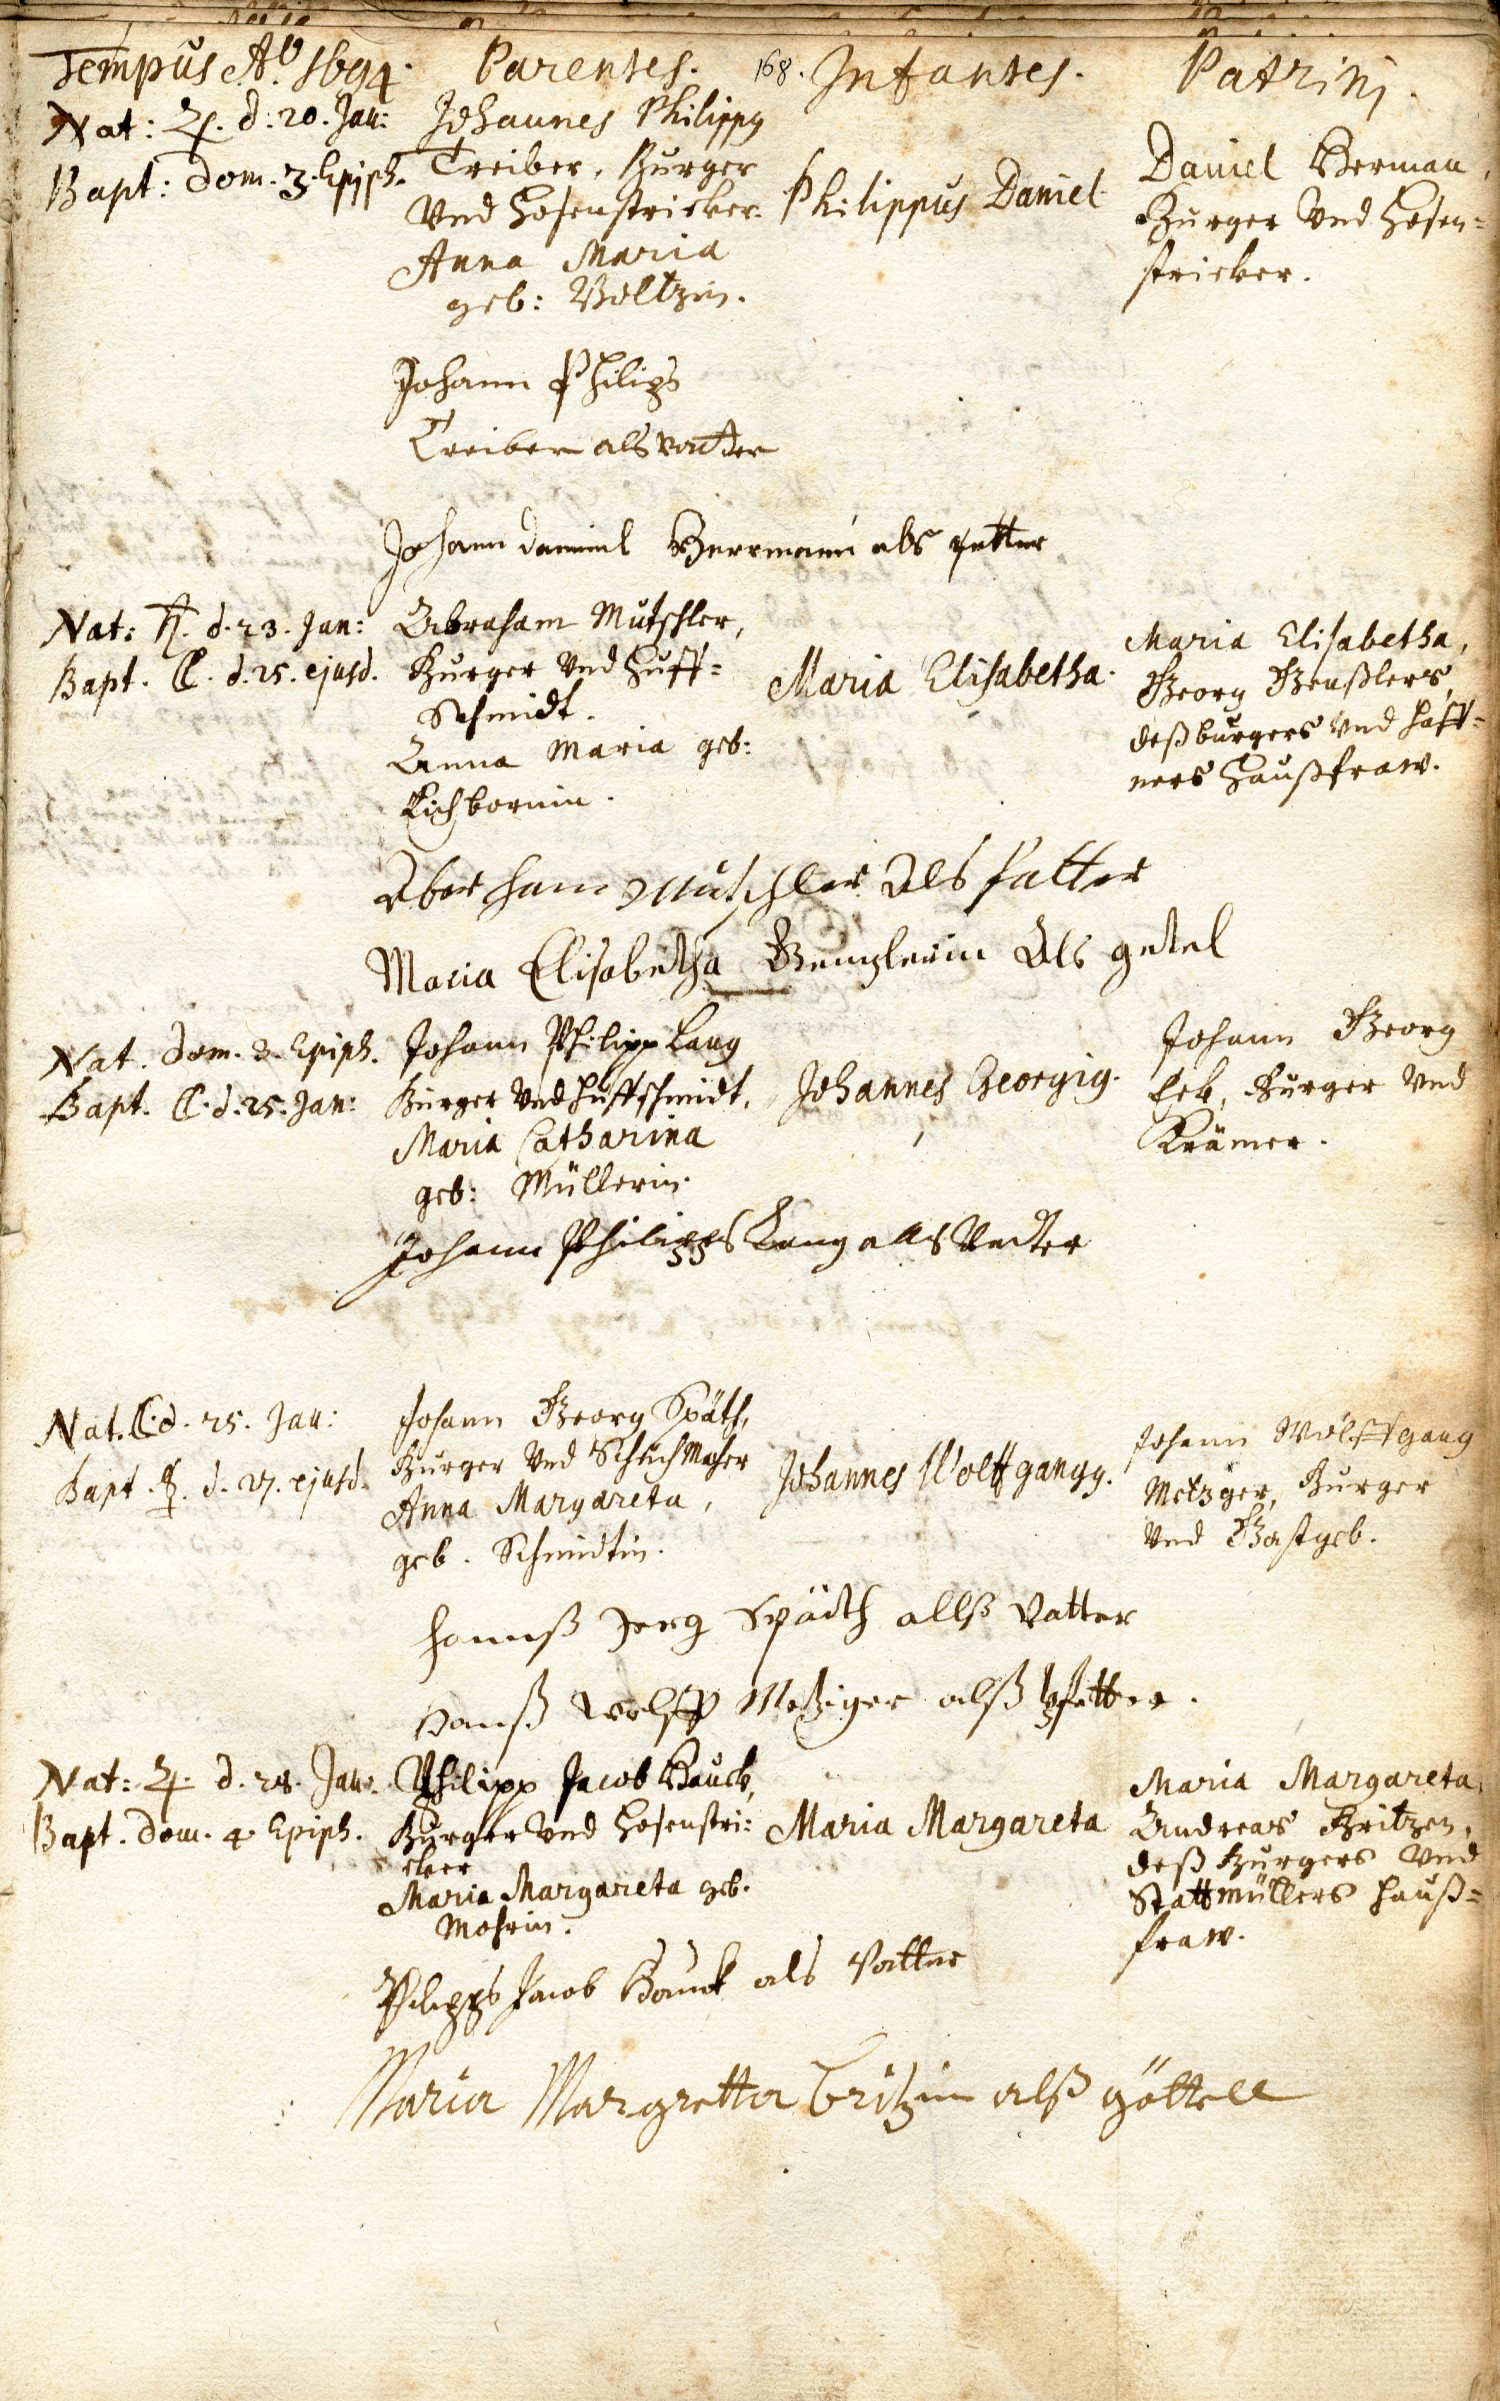 Tempus Aō 1694. Parentes. 168. Infantes. Patrinj.
Nat: ♃. d. 20. Jan:
Bapt: dom. 3. Epiph.
Johannes Philippg
Treiber, Burger
Vnd Hosenstricker.
Anna Maria
geb: Voltzin.
Philippus Daniel
Daniel Berman,
Burger Vnd Hosen=
stricker.
Johann Philips
Treiber als vatter
Johann Daniel Berrmann als petter
Nat: ♄. d. 23. Jan:
Bapt. ☾. d. 25. ejusd.
Abraham Mutschler,
Burger Vnd Huff=
Schmidt.
Anna Maria geb:
Eichbornin.
Maria Elisabetha.
Maria Elisabetha,
Georg
deß burgers Vnd Haff=
ners Haußfraw.
Aberham Mutschler Als fatter
Maria Elisabetha Als getel
Nat. dom. 3. Epiph.
Bapt. ☾. d. 25. Jan:
Johann Philipp Lang
Burger Vnd Huffschmidt,
Maria Catharina
geb: Müllerin.
Johannes Georgig.
Johann Georg
Leb, Burger Vnd
Krämer.
Johann Philipps Lang alls Vatter
Nat. ☾. d. 25. Jan:
Bapt. ☿. d. 27. ejusd.
Johann Georg Späth,
Burger Vnd Schuchmacher
Anna Margareta,
geb. Schmidtin.
Johannes Wolffgangg.
Johann Wolffgang
Metzger, Burger
Vnd Gastgeb.
Hannß Jerg Späth allß Vatter
Hanß Wolff Metziger alß pfetter.
Nat: ♃. d. 28. Jan:
Bapt. dom. 4. Epiph.
Philipp Jacob Hauck,
Burger Vnd Hosenstri=
cker
Maria Margareta geb.
Mohrin.
Maria Margareta
Maria Margareta,
Andreas Britzen,
deß Burgers Vnd
Stattmüllers Hauß=
fraw.
Philipps Jacob Hauck als Vatter
Maria Margretta Britzin alß göttell